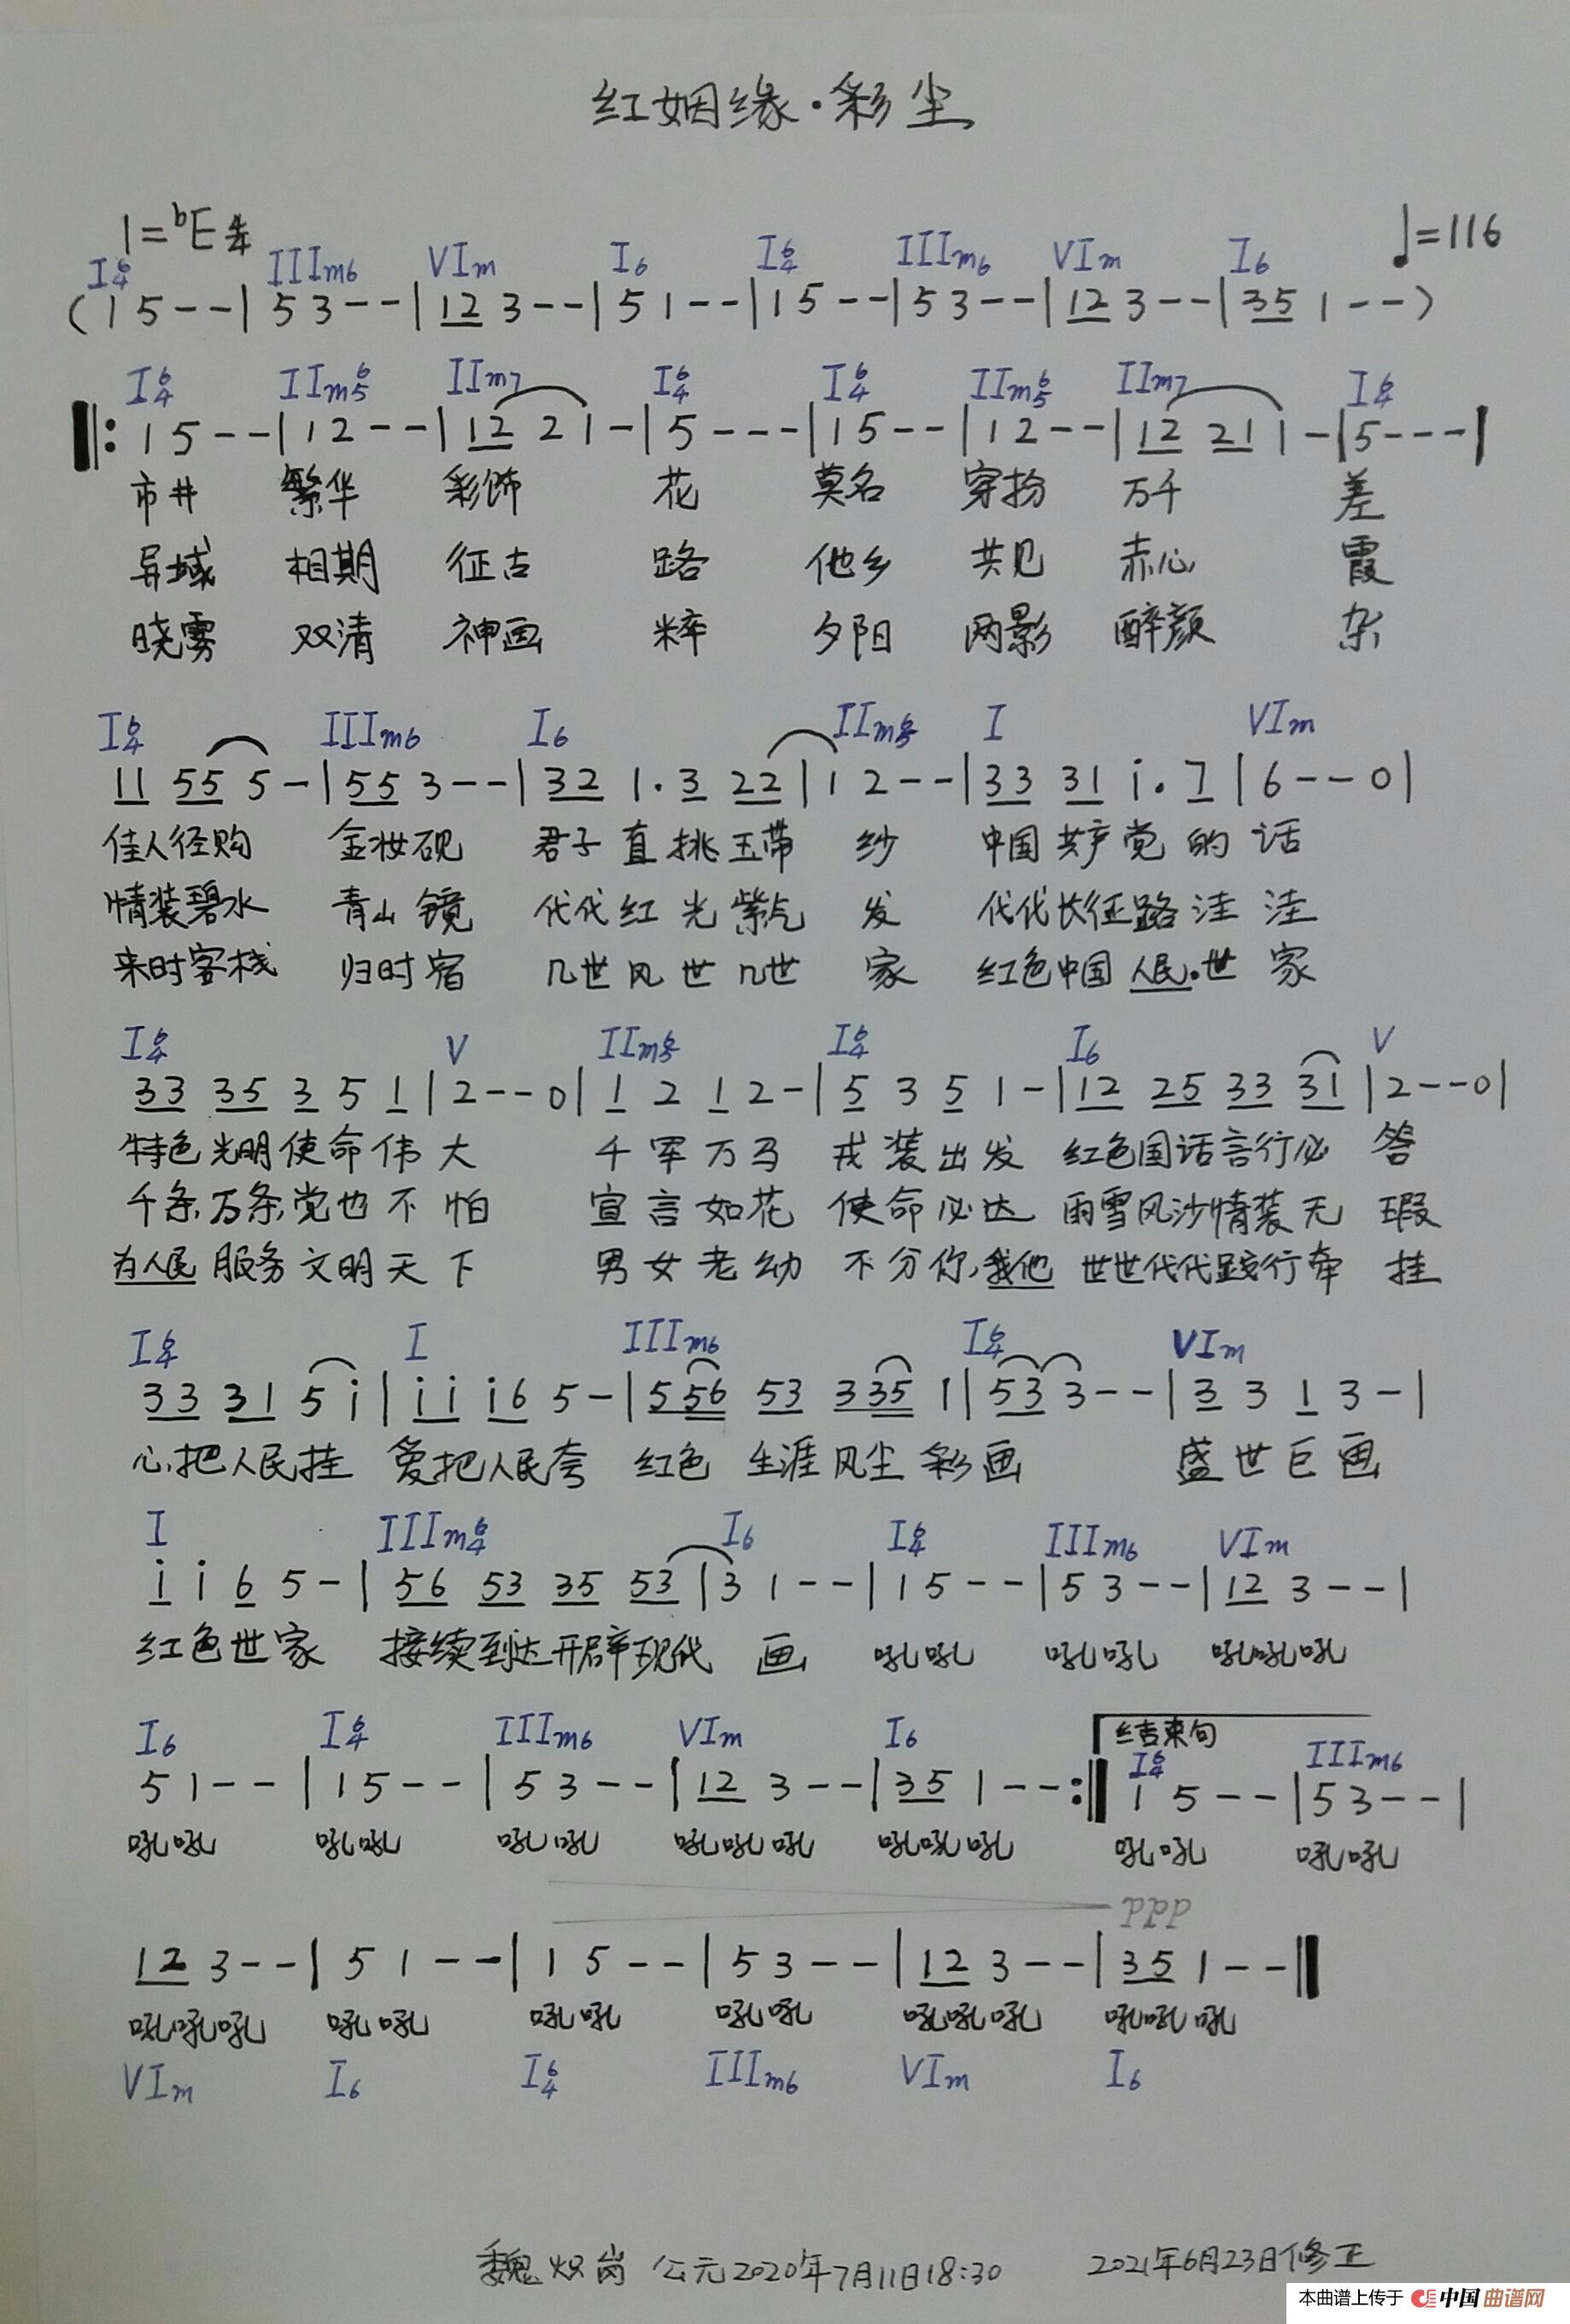 红姻缘·彩尘
1=ᵇE 4/4 ♩=116
I⁶₄ IIIm₆ VIm I₆ I⁶₄ IIIm₆ VIm I₆
(1 5 - - | 5 3 - - | 12 3 - - | 5 1 - - | 1 5 - - | 5 3 - - | 12 3 - - | 35 1 - - )
I⁶₄ IIm⁶₅ IIm₇ I⁶₄ I⁶₄ IIm⁶₅ IIm₇ I⁶₄
‖: 1 5 - - | 1 2 - - | 12 2 1 - | 5 - - - | 1 5 - - | 1 2 - - | 12 21 1 - | 5 - - - |
市井 繁华 彩饰 花 莫名 穿扮 万千 差
异域 相期 征古 路 他乡 共见 赤心 霞
晓雾 双清 神画 粹 夕阳 两影 醉颜 杂
I⁶₄ IIIm₆ I₆ IIm⁶₅ I VIm
11 55 5 - | 55 3 - - | 32 1· 3 22 | 1 2 - - | 33 31 i· 7 | 6 - - 0 |
佳人径购 金妆砚 君子直挑玉带 纱 中国共产党的 话
情装碧水 青山镜 代代红光紫气 发 代代长征路洼 洼
来时客栈 归时宿 几世风世几世 家 红色中国人民·世 家
I⁶₄ V IIm⁶₅ I⁶₄ I₆ V
33 35 3 5 1 | 2 - - 0 | 1 2 1 2 - | 5 3 5 1 - | 12 25 33 31 | 2 - - 0 |
特色光明使命伟大 千军万马 戎装出发 红色国话言行必 答
千条万条党也不怕 宣言如花 使命必达 雨雪风沙情装无 瑕
为人民服务文明天下 男女老幼 不分你,我他 世世代代践行牵 挂
I⁶₄ I IIIm₆ I⁶₄ VIm
33 31 5 i | i i i6 5 - | 556 53 335 1 | 53 3 - - | 3 3 1 3 - |
心把人民挂 爱把人民夸 红色 生涯风尘 彩画 盛世巨画
I IIIm⁶₄ I₆ I⁶₄ IIIm₆ VIm
i i 6 5 - | 56 53 35 53 | 3 1 - - | 1 5 - - | 5 3 - - | 12 3 - - |
红色世家 接续到达开辟现代 画 吼吼 吼吼 吼吼吼
I₆ I⁶₄ IIIm₆ VIm I₆ 结束句 I⁶₄ IIIm₆
5 1 - - | 1 5 - - | 5 3 - - | 12 3 - - | 35 1 - - :‖ 1 5 - - | 5 3 - - |
吼吼 吼吼 吼吼 吼吼吼 吼吼吼 吼吼 吼吼
ppp
12 3 - - | 5 1 - - | 1 5 - - | 5 3 - - | 12 3 - - | 35 1 - - ‖
吼吼吼 吼吼 吼吼 吼吼 吼吼吼 吼吼吼
VIm I₆ I⁶₄ IIIm₆ VIm I₆
魏炽岗 公元2020年7月11日18:30 2021年6月23日修正
本曲谱上传于 中国曲谱网